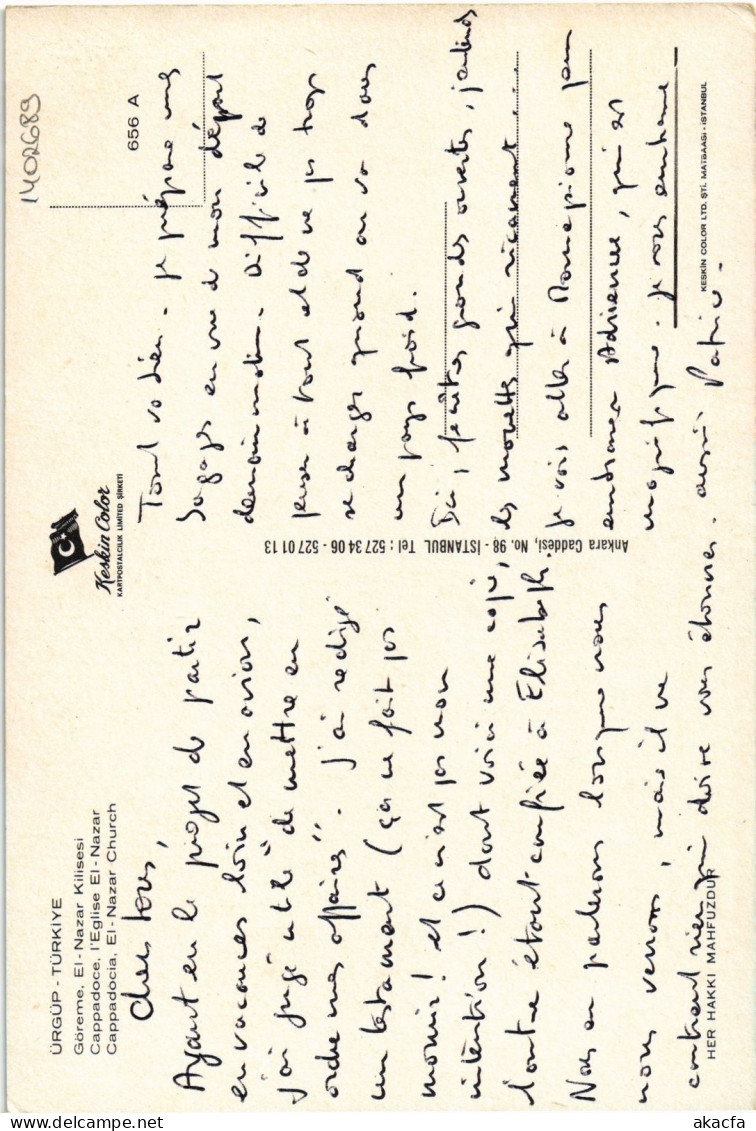 ÜRGÜP - TÜRKİYE
Göreme, El-Nazar Kilisesi
Cappadoce, l'Eglise El-Nazar
Cappadocia, El-Nazar Church
Chers tous,
Ayant eu le projet de partir
en vacances loin et en avion,
j'ai jugé utile "de mettre en
ordre mes affaires". J'ai rédigé
un testament (ça ne fait pas
mourir ! et ce n'est pas mon
intention !) dont voici une copie,
l'autre étant confiée à Elisabeth.
Nous en parlerons lorsque nous
nous verrons, mais il ne
contient rien qui doive vous étonner.
HER HAKKI MAHFUZDUR
Keskin Color
KARTPOSTALCILIK LIMITED ŞİRKETİ
Ankara Caddesi, No. 98 - İSTANBUL Tel : 527 34 06 - 527 01 13
1402689
656 A
Tout va bien - Je prépare mes
bagages en vue de mon départ
demain matin - Difficile de
penser à tout et de ne pas trop
se charger quand on va dans
un pays froid.
Ici, fenêtres grandes ouvertes, j'entends
les mouettes qui ricanent...
Je vais aller à Monoprix pour
embrasser Adrienne, qui est
magnifique. Je vous embrasse
aussi Patric -
KESKİN COLOR LTD. ŞTİ. MATBAASI - İSTANBUL
akacfa
www.delcampe.net